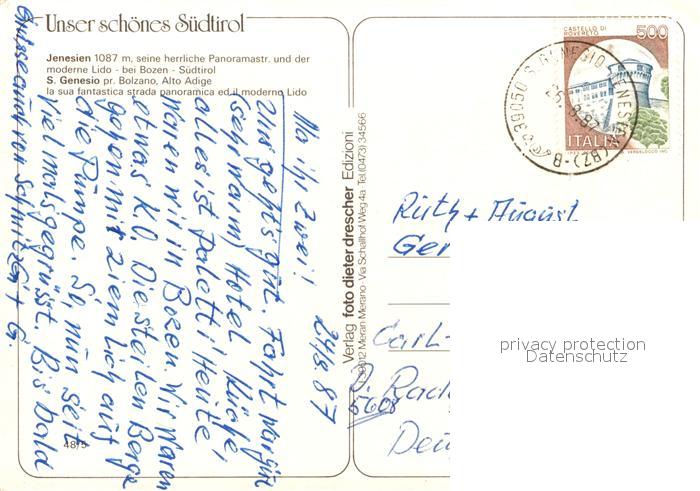 Unser schönes Südtirol
Jenesien 1087 m, seine herrliche Panoramastr. und der
moderne Lido - bei Bozen - Südtirol
S. Genesio pr. Bolzano, Alto Adige
la sua fantastica strada panoramica ed il moderno Lido
24/8 87
Na ihr Zwei!
Uns gehts gut. Fahrt war gut
(sehr warm) Hotel, Küche,
alles ist Paletti! Heute,
waren wir in Bozen. Wir waren
etwas K.O. Die steilen Berge
gehen mir ziemlich auf
die Pumpe. So, nun seit
vielmals gegrüsst. Bis bald
Grüsse auch von + G.
48/5
Verlag foto dieter drescher Edizioni
39012 Meran Merano - Via Schallhof Weg 4a - Tel. (0473) 34566
CASTELLO DI
ROVERETO
500
ITALIA
39050 S. GENESIO JENESIEN (BZ) - B
Ruth + August
Ger
Carl-
5608
privacy protection
Datenschutz